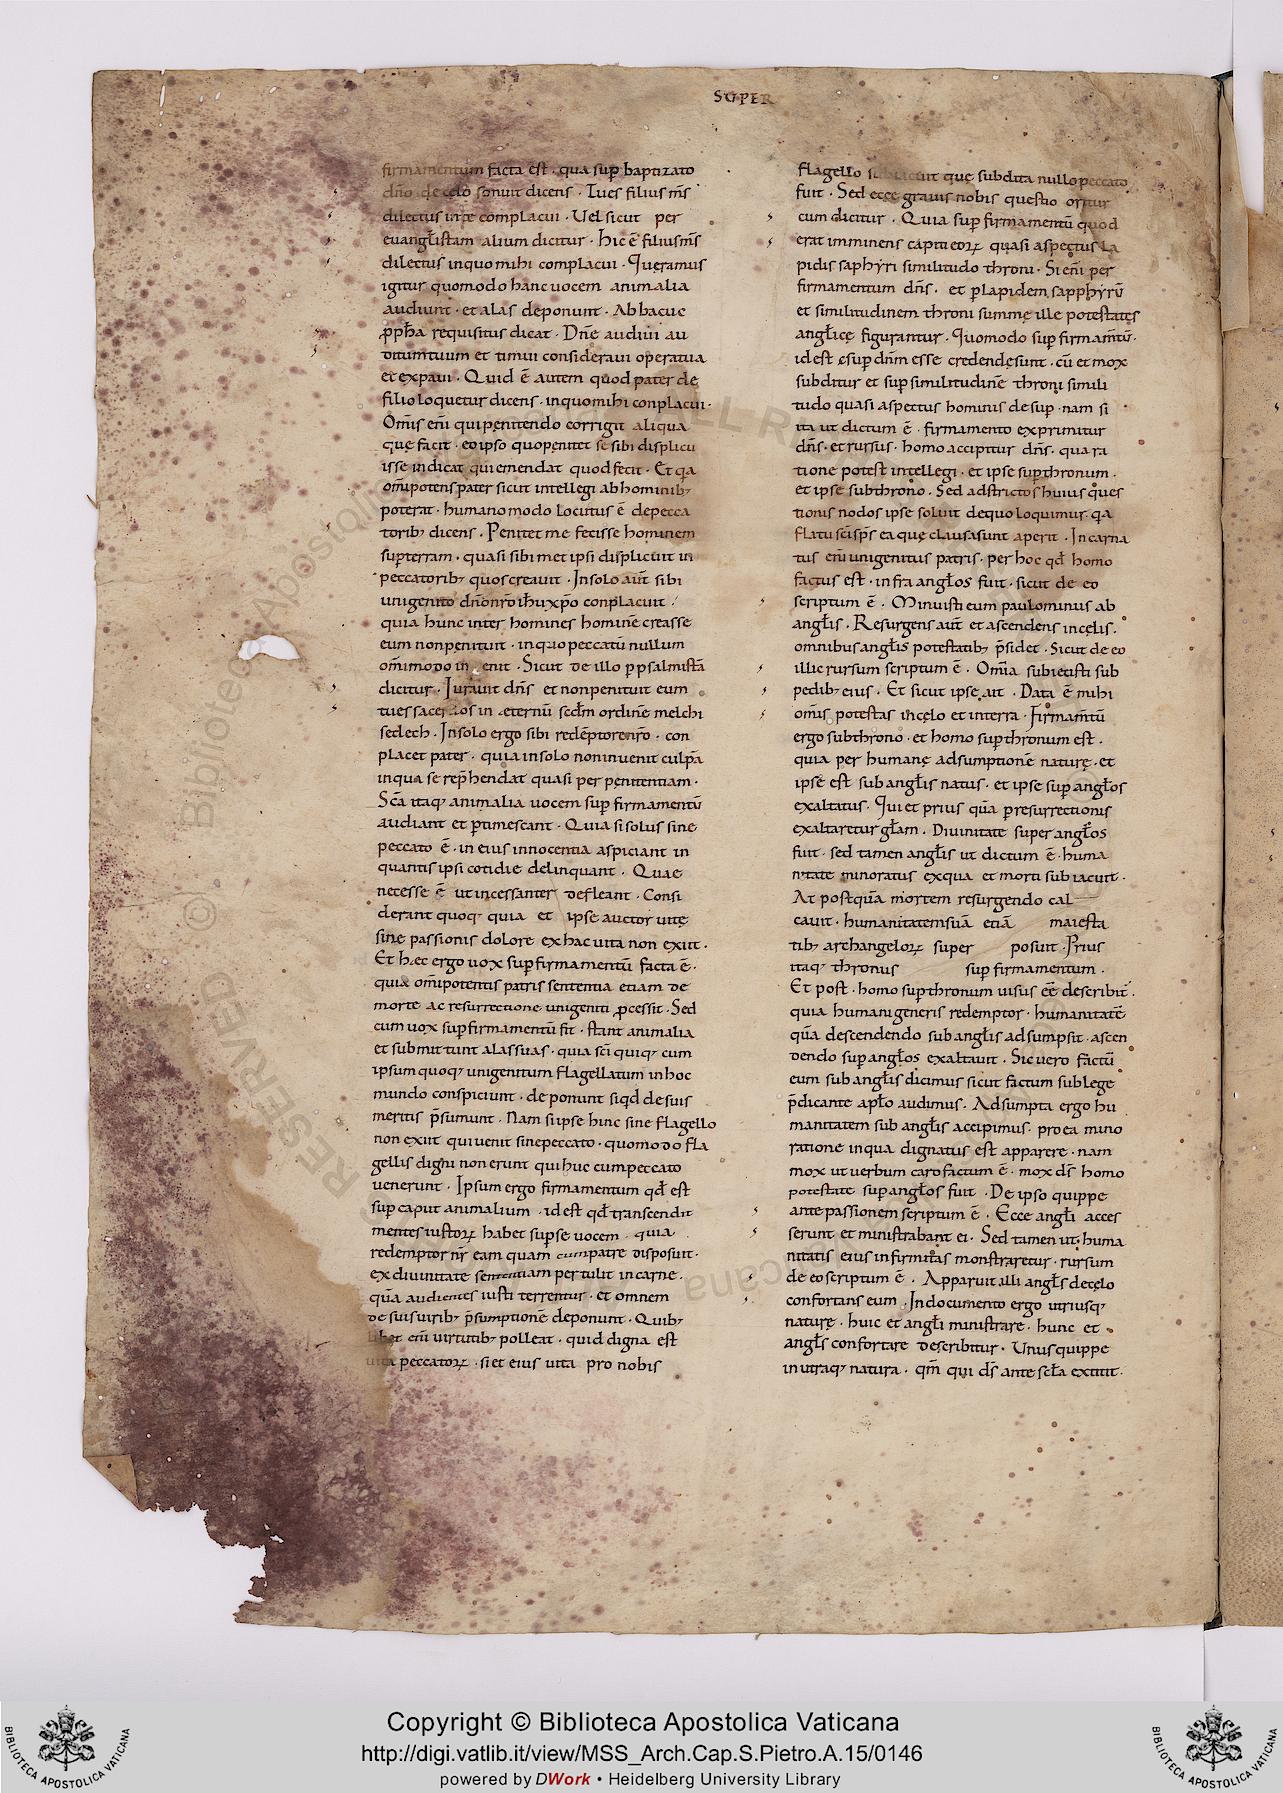 SUPER
firmamentum facta est · qua sup̄ baptizato
dño de celo sonuit dicens · Tu es filius m̅s
dilectus in te complacui · Vel sicut per
euangl̄istam alium dicitur · hic ē filius m̅s
dilectus in quo mihi complacui · Queramus
igitur quomodo hanc uocem animalia
audiunt · et alas deponunt · Abbacuc
pp̄ha requisitus dicat · Dn̄e audiui au
ditum tuum et timui consideraui opera tua
et expaui · Quid ē autem quod pater de
filio loquetur dicens · in quo mihi conplacui ·
Om̄s eni qui penitendo corrigit aliqua
que facit · eo ipso quo penitet se sibi displicu
isse indicat qui emendat quod fecit · Et qa
om̄ipotens pater sicut intellegi ab hominib;
poterat · humano modo locutus ē de pecca
torib; dicens · Penitet me fecisse hominem
sup̄ terram · quasi sibimet ipsi displicuit in
peccatorib; quos creauit · In solo aut̄ sibi
unigenito dn̄o nr̄o ih̄u xp̄o conplacuit ·
quia hunc inter homines hominē creasse
eum non penituit · in quo peccatū nullum
om̄imodo enit · Sicut de illo p̱ psalmistā
dicitur · Iurauit dn̄s et non penituit eum
tu es sacerdos in æternū scdm̄ ordinē melchi
sedech · In solo ergo sibi redēptore nr̄o · con
placet pater · quia in solo non inuenit culpā
in qua se rep̄hendat quasi per penitentiam ·
Sc̄a itaq; animalia uocem sup̄ firmamentū
audiant et p̱timescant · Quia si solus sine
peccato ē · in eius innocentia aspiciant in
quantis ipsi cotidie delinquant · Quae
necesse ē ut incessanter defleant · Consi
derant quoq; quia et ipse auctor uitę
sine passionis dolore ex hac uita non exiit ·
Et hæc ergo uox sup̄ firmamentū facta ē ·
quia om̄ipotentis patris sententia etiam de
morte ac resurrectione unigeniti p̱cessit · Sed
cum uox sup̄ firmamentū fit · stant animalia
et submittunt alas suas · quia sc̄i quiq; cum
ipsum quoq; unigenitum flagellatum in hoc
mundo conspiciunt · deponunt siqd de suis
meritis p̄sumunt · Nam si ipse hinc sine flagello
non exiit qui uenit sine peccato · quomodo fla
gellis digni non erunt qui huc cum peccato
uenerunt · Ipsum ergo firmamentum qd̄ est
sup̄ caput animalium · id est qd̄ transcendit
mentes iustoꝝ habet sup̄ se uocem · quia
redemptor nr̄ eam quam cum patre disposuit ·
ex diuinitate sententiam pertulit in carne ·
quā audientes iusti terrentur · et omnem
de suis uirib; p̄sumptionē deponunt · Quib;
libet eni uirtutib; polleat · quid digna est
uita peccatoꝝ · si et eius uita pro nobis
flagello subiacuit quę subdita nullo peccato
fuit · Sed ecce grauis nobis questio oritur
cum dicitur · Quia sup̄ firmamentū quod
erat imminens capiti eoꝝ quasi aspectus la
pidis saphyri similitudo throni · Si eni per
firmamentum dn̄s · et p̱ lapidem sapphyrū
et similitudinem throni summę ille potestates
angl̄icę figurantur · Quomodo sup̄ firmam̄tū ·
id est sup̄ dn̄m esse credendę sunt · cū et mox
subditur et sup̄ similitudinē throni simili
tudo quasi aspectus hominis desup · nam si
ita ut dictum ē · firmamento exprimitur
dn̄s · et rursus · homo accipitur dn̄s · qua ra
tione potest intellegi · et ipse sup̄ thronum ·
et ipse sub throno · Sed adstrictos huius ques
tionis nodos ipse soluit de quo loquimur · qa
flatu sc̄i sp̄s ea quę clausa sunt aperit · Incarna
tus eni unigenitus patris · per hoc qd̄ homo
factus est · infra angl̄os fuit · sicut de eo
scriptum ē · Minuisti eum paulominus ab
angl̄is · Resurgens aut̄ et ascendens in celis ·
omnibus angl̄is potestatib; p̄sidet · Sicut de eo
illic rursum scriptum ē · Omīa subiecisti sub
pedib; eius · Et sicut ipse ait · Data ē mihi
om̄s potestas in celo et in terra · Firmam̄tū
ergo sub throno · et homo sup̄ thronum est ·
quia per humanę adsumptionē naturę · et
ipse est sub angl̄is natus · et ipse sup̄ angl̄os
exaltatus · Qui et prius quā p̱ resurrectionis
exaltaretur gl̄am · Diuinitate super angl̄os
fuit · sed tamen angl̄is ut dictum ē · huma
nitate minoratus ex qua et morti subiacuit ·
At postquā mortem resurgendo cal
cauit · humanitatem suā etiā maiesta
tib; archangeloꝝ super posuit · Prius
itaq; thronus sup̄ firmamentum ·
Et post · homo sup̄ thronum uisus eē describit ·
quia humani generis redemptor · humanitatē
quā descendendo sub angl̄is adsumpsit · ascen
dendo sup̄ angl̄os exaltauit · Sic uero factū
eum sub angl̄is dicimus sicut factum sub lege
p̄dicante apl̄o audimus · Adsumpta ergo hu
manitatem sub angl̄is accipimus · pro ea mino
ratione in qua dignatus est apparere · nam
mox ut uerbum caro factum ē · mox ds̄ homo
potestate sup̄ angl̄os fuit · De ipso quippe
ante passionem scriptum ē · Ecce angl̄i acces
serunt et ministrabant ei · Sed tamen ut huma
nitatis eius infirmitas monstraretur · rursum
de eo scriptum ē · Apparuit illi angl̄s de cęlo
confortans eum · In documento ergo utriusq;
naturę · huic et angl̄i ministrare · hunc et
angl̄s confortare describitur · Unus quippe
in utraq; natura · qm̄ qui ds̄ ante secl̄a extitit ·
Copyright © Biblioteca Apostolica Vaticana
http://digi.vatlib.it/view/MSS_Arch.Cap.S.Pietro.A.15/0146
powered by DWork • Heidelberg University Library
BIBLIOTECA APOSTOLICA VATICANA
BIBLIOTECA APOSTOLICA VATICANA